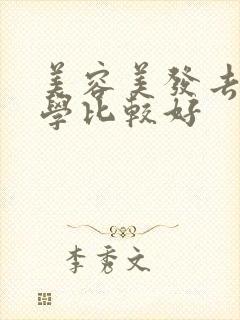 美容美發去
學比較好
李秀文